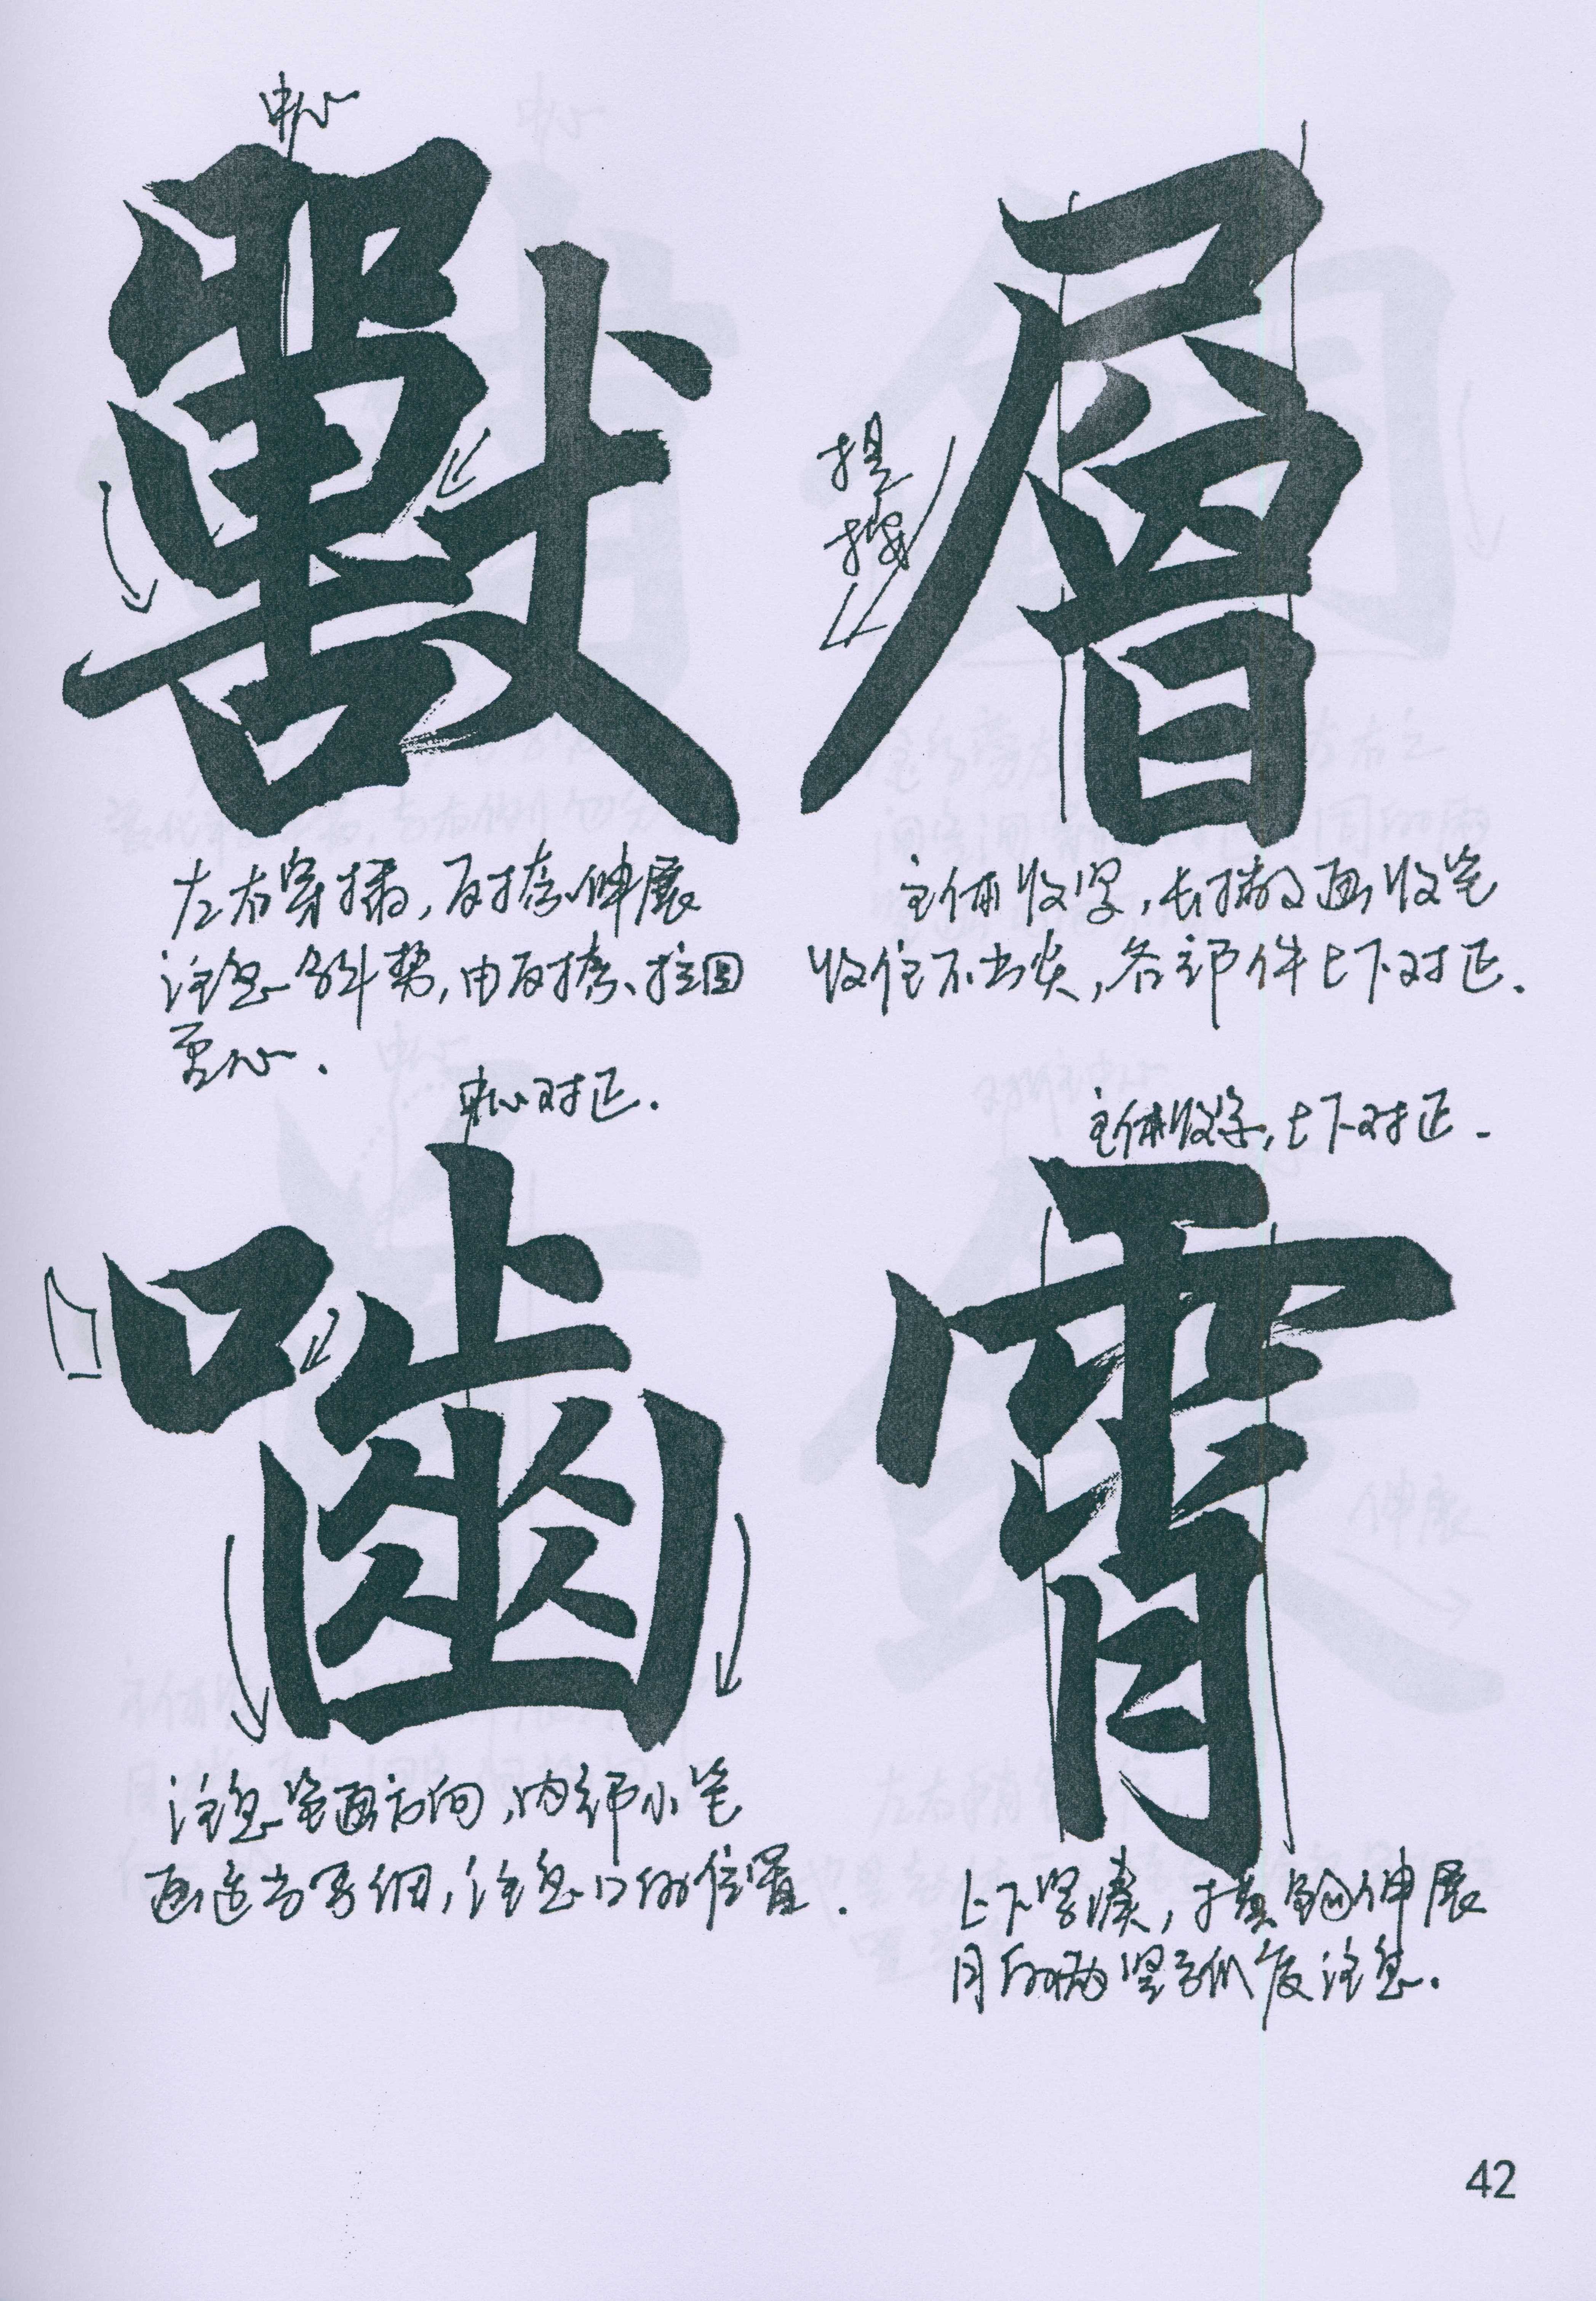 中心
獸
左右穿插，反捺伸展
注意斜势，由反捺、拉回
重心.
層
提
按
主体收紧，长撇及画收笔
收住不出尖，各部件上下对正.
中心对正.
嚙
注意笔画方向，内部小笔
画适当写细，注意口的位置.
主体收紧，上下对正.
霄
上下紧凑，横钩伸展
月的两竖弧度注意.
42